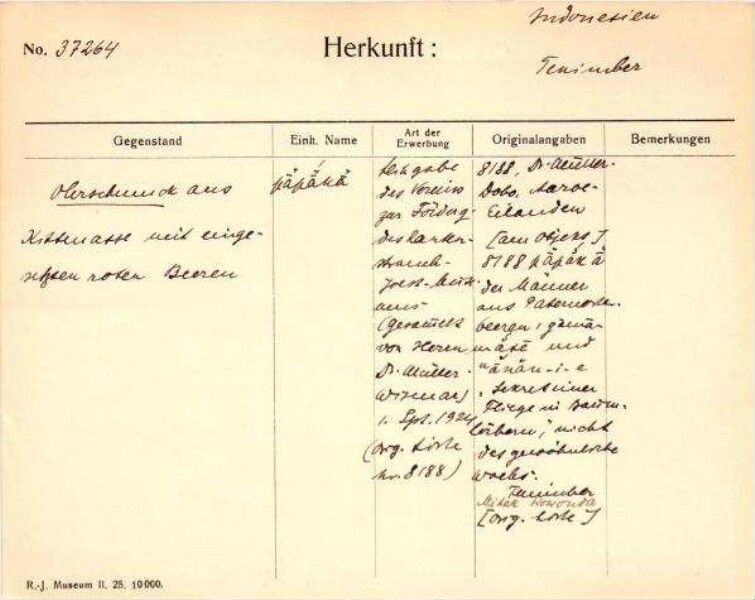 Indonesien
No. 37264 Herkunft:
Tenimber
Gegenstand
Einh. Name
Art der Erwerbung
Originalangaben
Bemerkungen
Ohrschmuck aus
Kittmasse mit einge-
setzten roten Beeren
päpäkä
Leihgabe
des Vereins
zur Förderg.
des Rauten-
strauch-
Joest-Mus-
eums
(gesammelt
von Herrn
Dr. Müller-
Wismar)
1. Spt. 1924
(orig. Liste
Nr. 8188)
8188, Dr. Müller-
Dobo, Aaroe-
Eilanden
[am Objekt]
8188 päpäkä
der Männer
aus Paternoster-
beeren,
und
"änän-i-e
Sekret einer
Fliege in
nicht
des gewöhnliche
Wachs.
Tenimber
[orig. Liste]
R.-J. Museum II. 25. 10000.